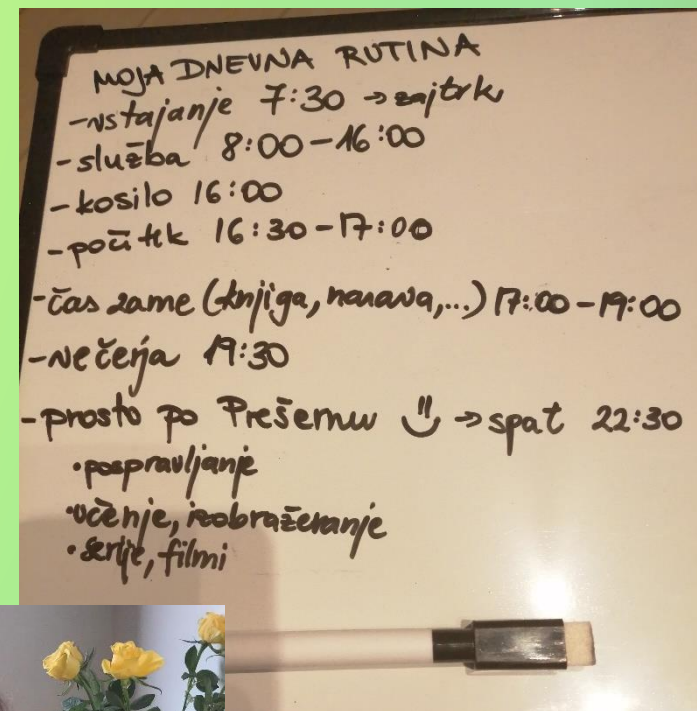 MOJA DNEVNA RUTINA
-vstajanje 7:30 → zajtrk
-služba 8:00-16:00
-kosilo 16:00
-počitek 16:30-17:00
-čas zame (knjiga, narava,...) 17:00-19:00
-večerja 19:30
-prosto po Prešernu → spat 22:30
•pospravljanje
•učenje, izobraževanje
•serije, filmi